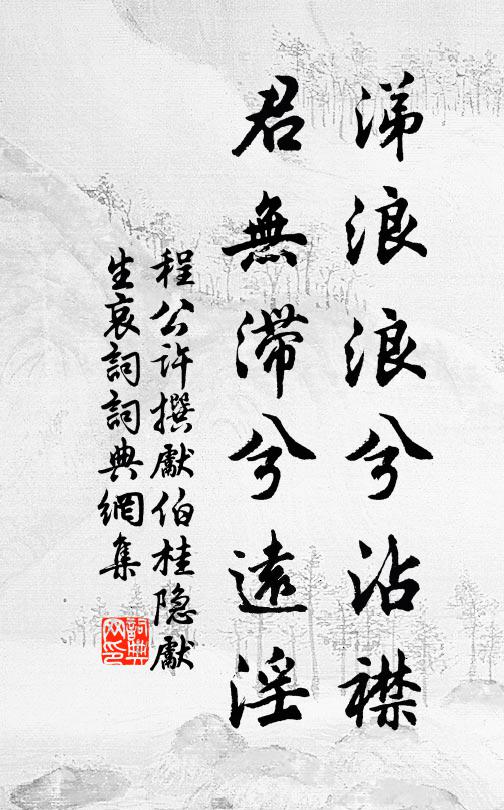 涕浪浪兮沾襟
君無滯兮遠淫
程公许撰獻伯桂隐獻
生哀詞詞典網集
詞典网印